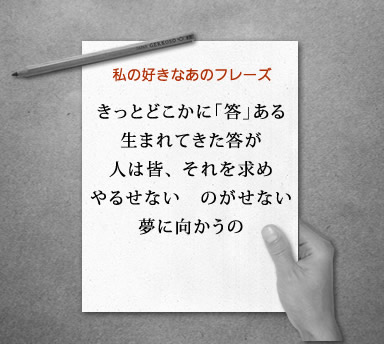 私の好きなあのフレーズ
きっとどこかに「答」ある
生まれてきた答が
人は皆、それを求め
やるせない　のがせない
夢に向かうの